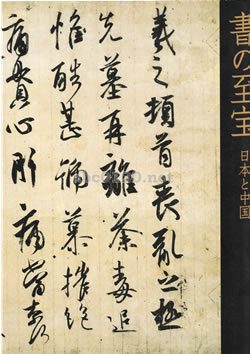 羲之頓首喪亂之極
先墓再離荼毒追
惟酷甚號慕摧絶
痛貫心肝痛當奈
書の至宝
日本と中国